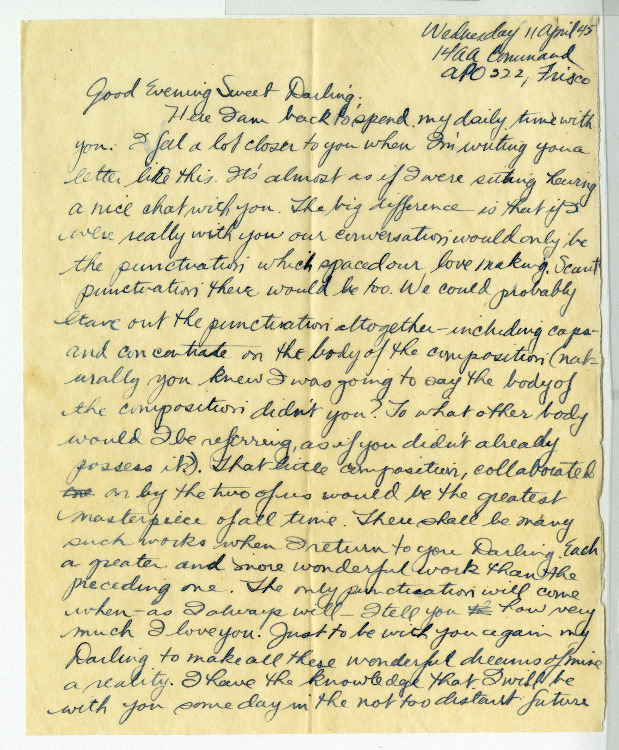 Wednesday 11 April 45
14AA Command
APO 322, Frisco
Good Evening Sweet Darling,
Here I am back to spend my daily time with
you. I feel a lot closer to you when I'm writing you a
letter like this. It's almost as if I were sitting having
a nice chat with you. The big difference is that if I
were really with you our conversation would only be
the punctuation which spaced our love making. Scant
punctuation there would be too. We could probably
leave out the punctuation altogether - including caps -
and concentrate on the body of the composition (nat-
urally you knew I was going to say the body of
the composition didn't you? To what other body
would I be referring, as if you didn't already
possess it?). That little composition, collaborated
on by the two of us would be the greatest
masterpiece of all time. There shall be many
such works when I return to you Darling. Each
a greater and more wonderful work than the
preceding one. The only punctuation will come
when - as I always will - I tell you how very
much I love you. Just to be with you again my
Darling to make all these wonderful dreams of mine
a reality. I have the knowledge that I will be
with you some day in the not too distant future